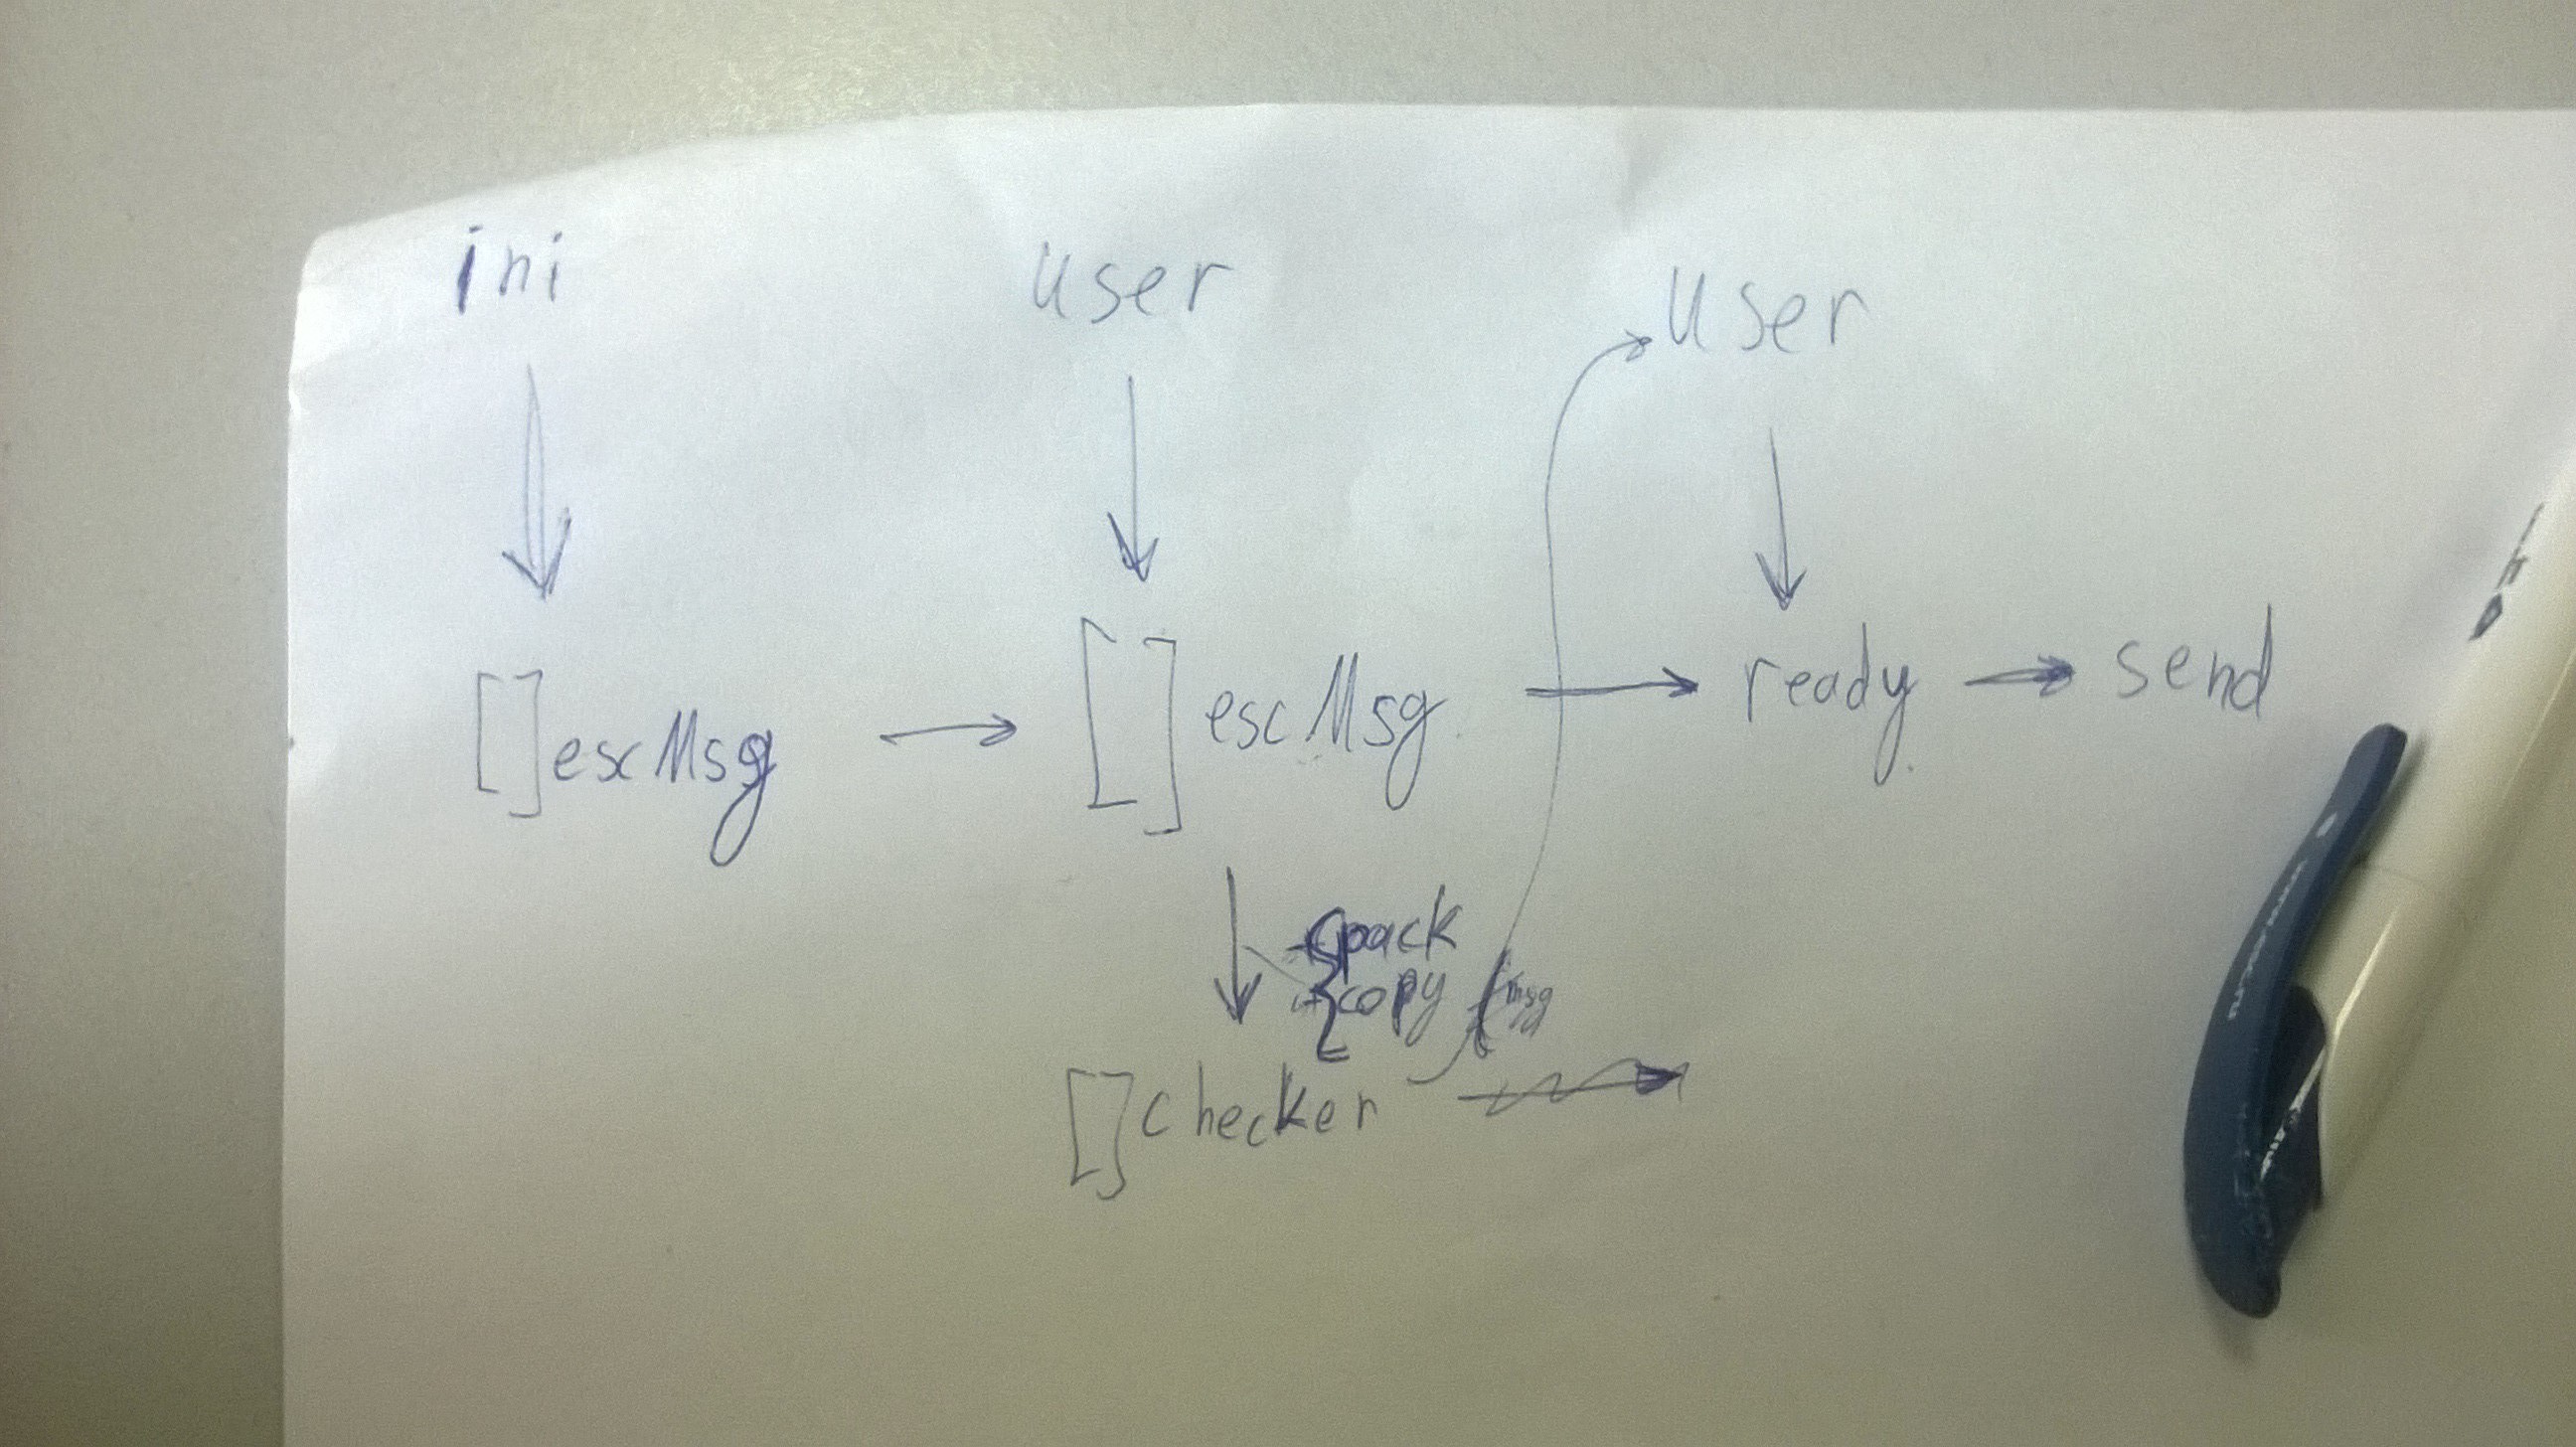 ini user user
[]escMsg → []escMsg → ready → send
pack
copy
msg
[]checker